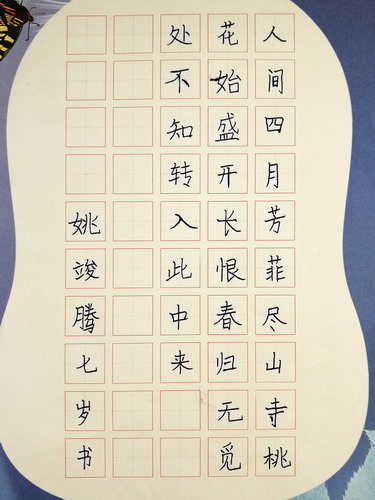 人间四月芳菲尽山寺桃
花始盛开长恨春归无觅
处不知转入此中来
姚竣腾七岁书